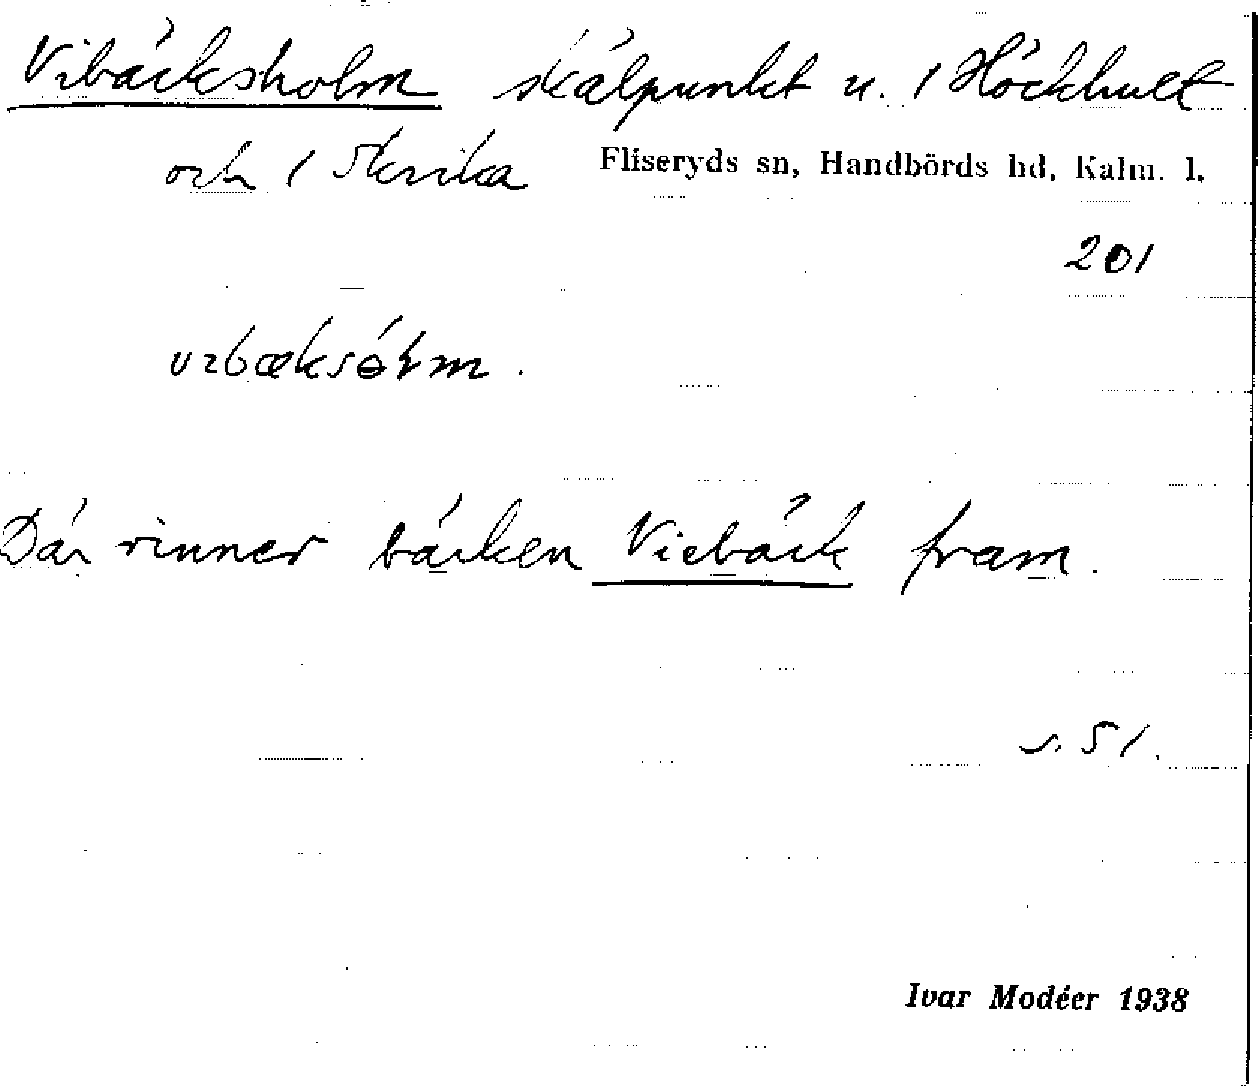 Vibäcksholm skälpunkt u. 1 Höckhult
och 1 Skrika Fliseryds sn, Handbörds hd, Kalm. l.
201
Där rinner bäcken Viebäck fram.
s. 51.
Ivar Modéer 1938